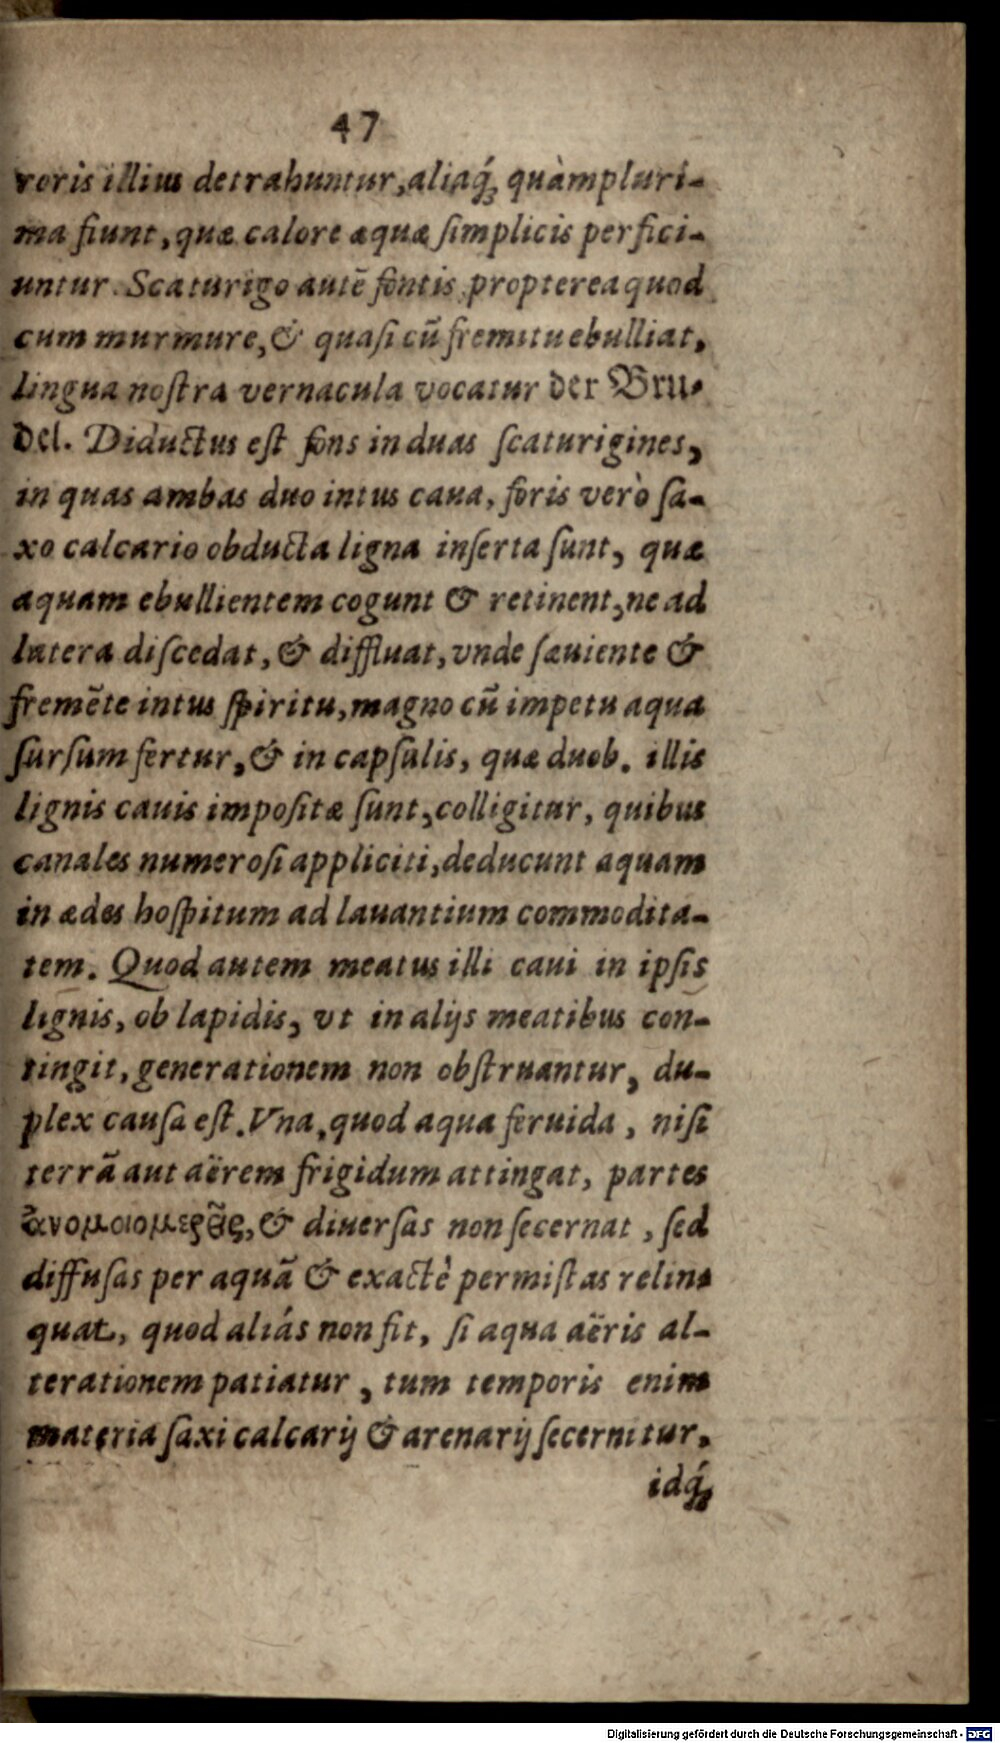 47
roris illius detrahuntur, aliaq́; quàmpluri-
ma fiunt, quæ calore aquæ ſimplicis perfici-
untur. Scaturigo autẽ fontis, propterea quod
cum murmure, & quaſi cũ fremitu ebulliat,
lingua noſtra vernacula vocatur der Bru-
del. Diductus eſt fons in duas ſcaturigines,
in quas ambas duo intus caua, foris verò ſa-
xo calcario obducta ligna inſerta ſunt, quæ
aquam ebullientem cogunt & retinent, ne ad
latera diſcedat, & diffluat, vnde ſæuiente &
fremẽte intus ſpiritu, magno cũ impetu aqua
ſurſum fertur, & in capſulis, quæ duob. illis
lignis cauis impoſitæ ſunt, colligitur, quibus
canales numeroſi appliciti, deducunt aquam
in ædes hoſpitum ad lauantium commodita-
tem. Quod autem meatus illi caui in ipſis
lignis, ob lapidis, vt in alijs meatibus con-
tingit, generationem non obſtruantur, du-
plex cauſa eſt. Vna, quod aqua feruida, niſi
terrã aut aërem frigidum attingat, partes
ἀνομοιομερεῖς, & diuerſas non ſecernat, ſed
diffuſas per aquã & exactè permiſtas relin-
quat, quod aliás non fit, ſi aqua aëris al-
terationem patiatur, tum temporis enim
materia ſaxi calcarij & arenarij ſecernitur,
idq́;
Digitalisierung gefördert durch die Deutsche Forschungsgemeinschaft - DFG